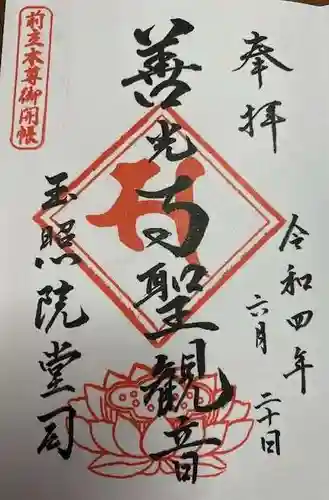 奉拝
令和四年
六月
二十日
善光寺聖観音
玉照院堂司
前立本尊御開帳